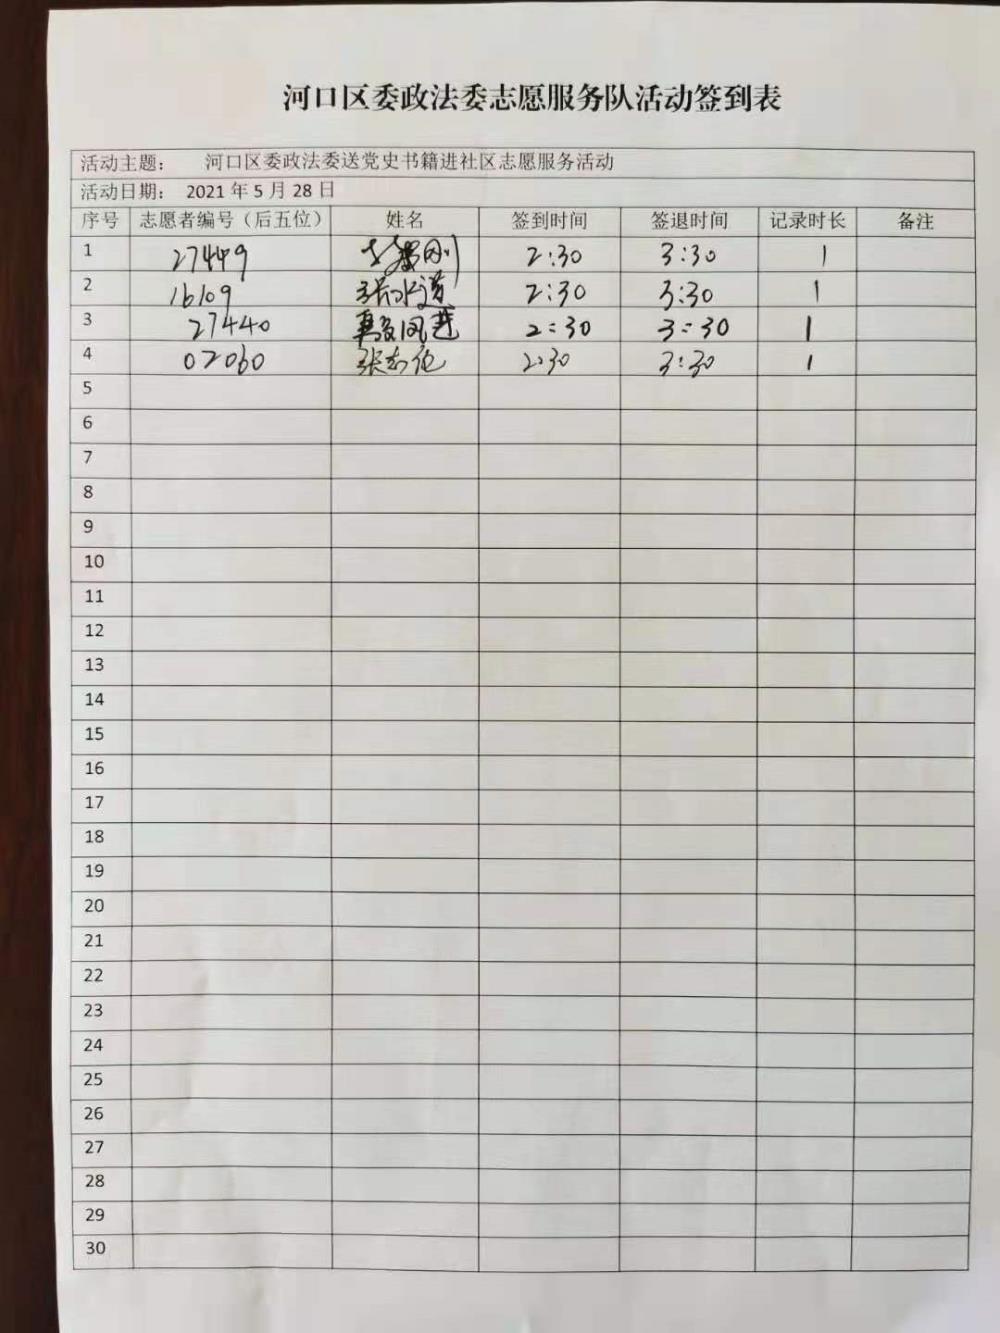 河口区委政法委志愿服务队活动签到表
活动主题： 河口区委政法委送党史书籍进社区志愿服务活动
活动日期： 2021 年 5 月 28 日
序号 志愿者编号（后五位） 姓名 签到时间 签退时间 记录时长 备注
1 27449 刚 2:30 3:30 1
2 16109 张 2:30 3:30 1
3 27440 2:30 3:30 1
4 02060 张志伦 2:30 3:30 1
5
6
7
8
9
10
11
12
13
14
15
16
17
18
19
20
21
22
23
24
25
26
27
28
29
30